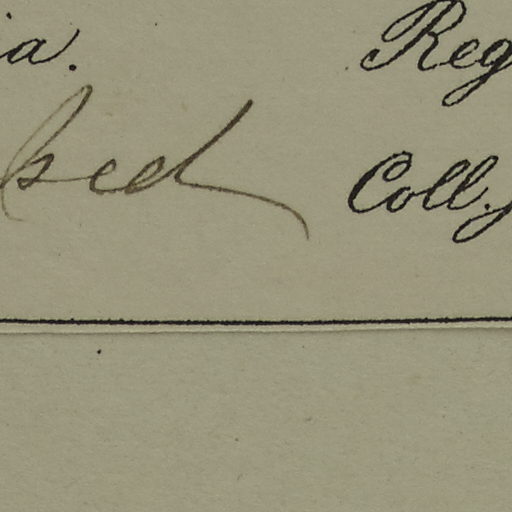 ia. Reg
sed Coll.